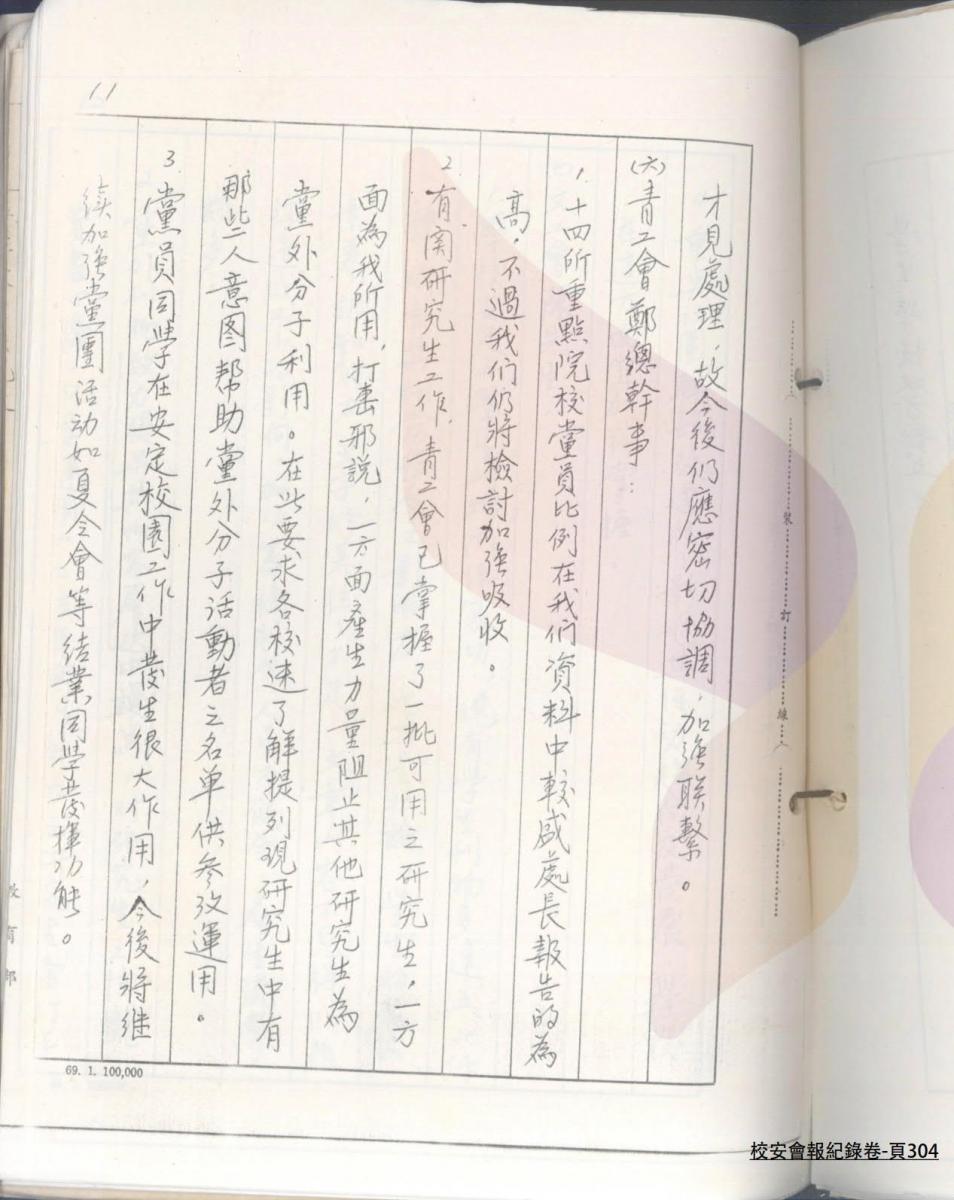 11
才見處理，故今後仍應密切協調，加強联繫。
(六)青工會鄭總幹事：
1.十四所重點院校黨員比例在我们資料中較戚處長報告的為
高，不過我们仍將檢討加強吸收。
2.有関研究生工作，青工會已掌握了一批可用之研究生，一方
面為我所用，打擊邪說，一方面產生力量阻止其他研究生為
黨外分子利用。在此要求各校速了解提列現研究生中有
那些人意图帮助黨外分子活動者之名单供参攷運用。
3.黨員同學在安定校園工作中發生很大作用，今後將继
续加強黨團活动如夏令會等结業同學發揮功能。
裝
訂
線
教育部
69. 1. 100,000
校安會報紀錄卷-頁304